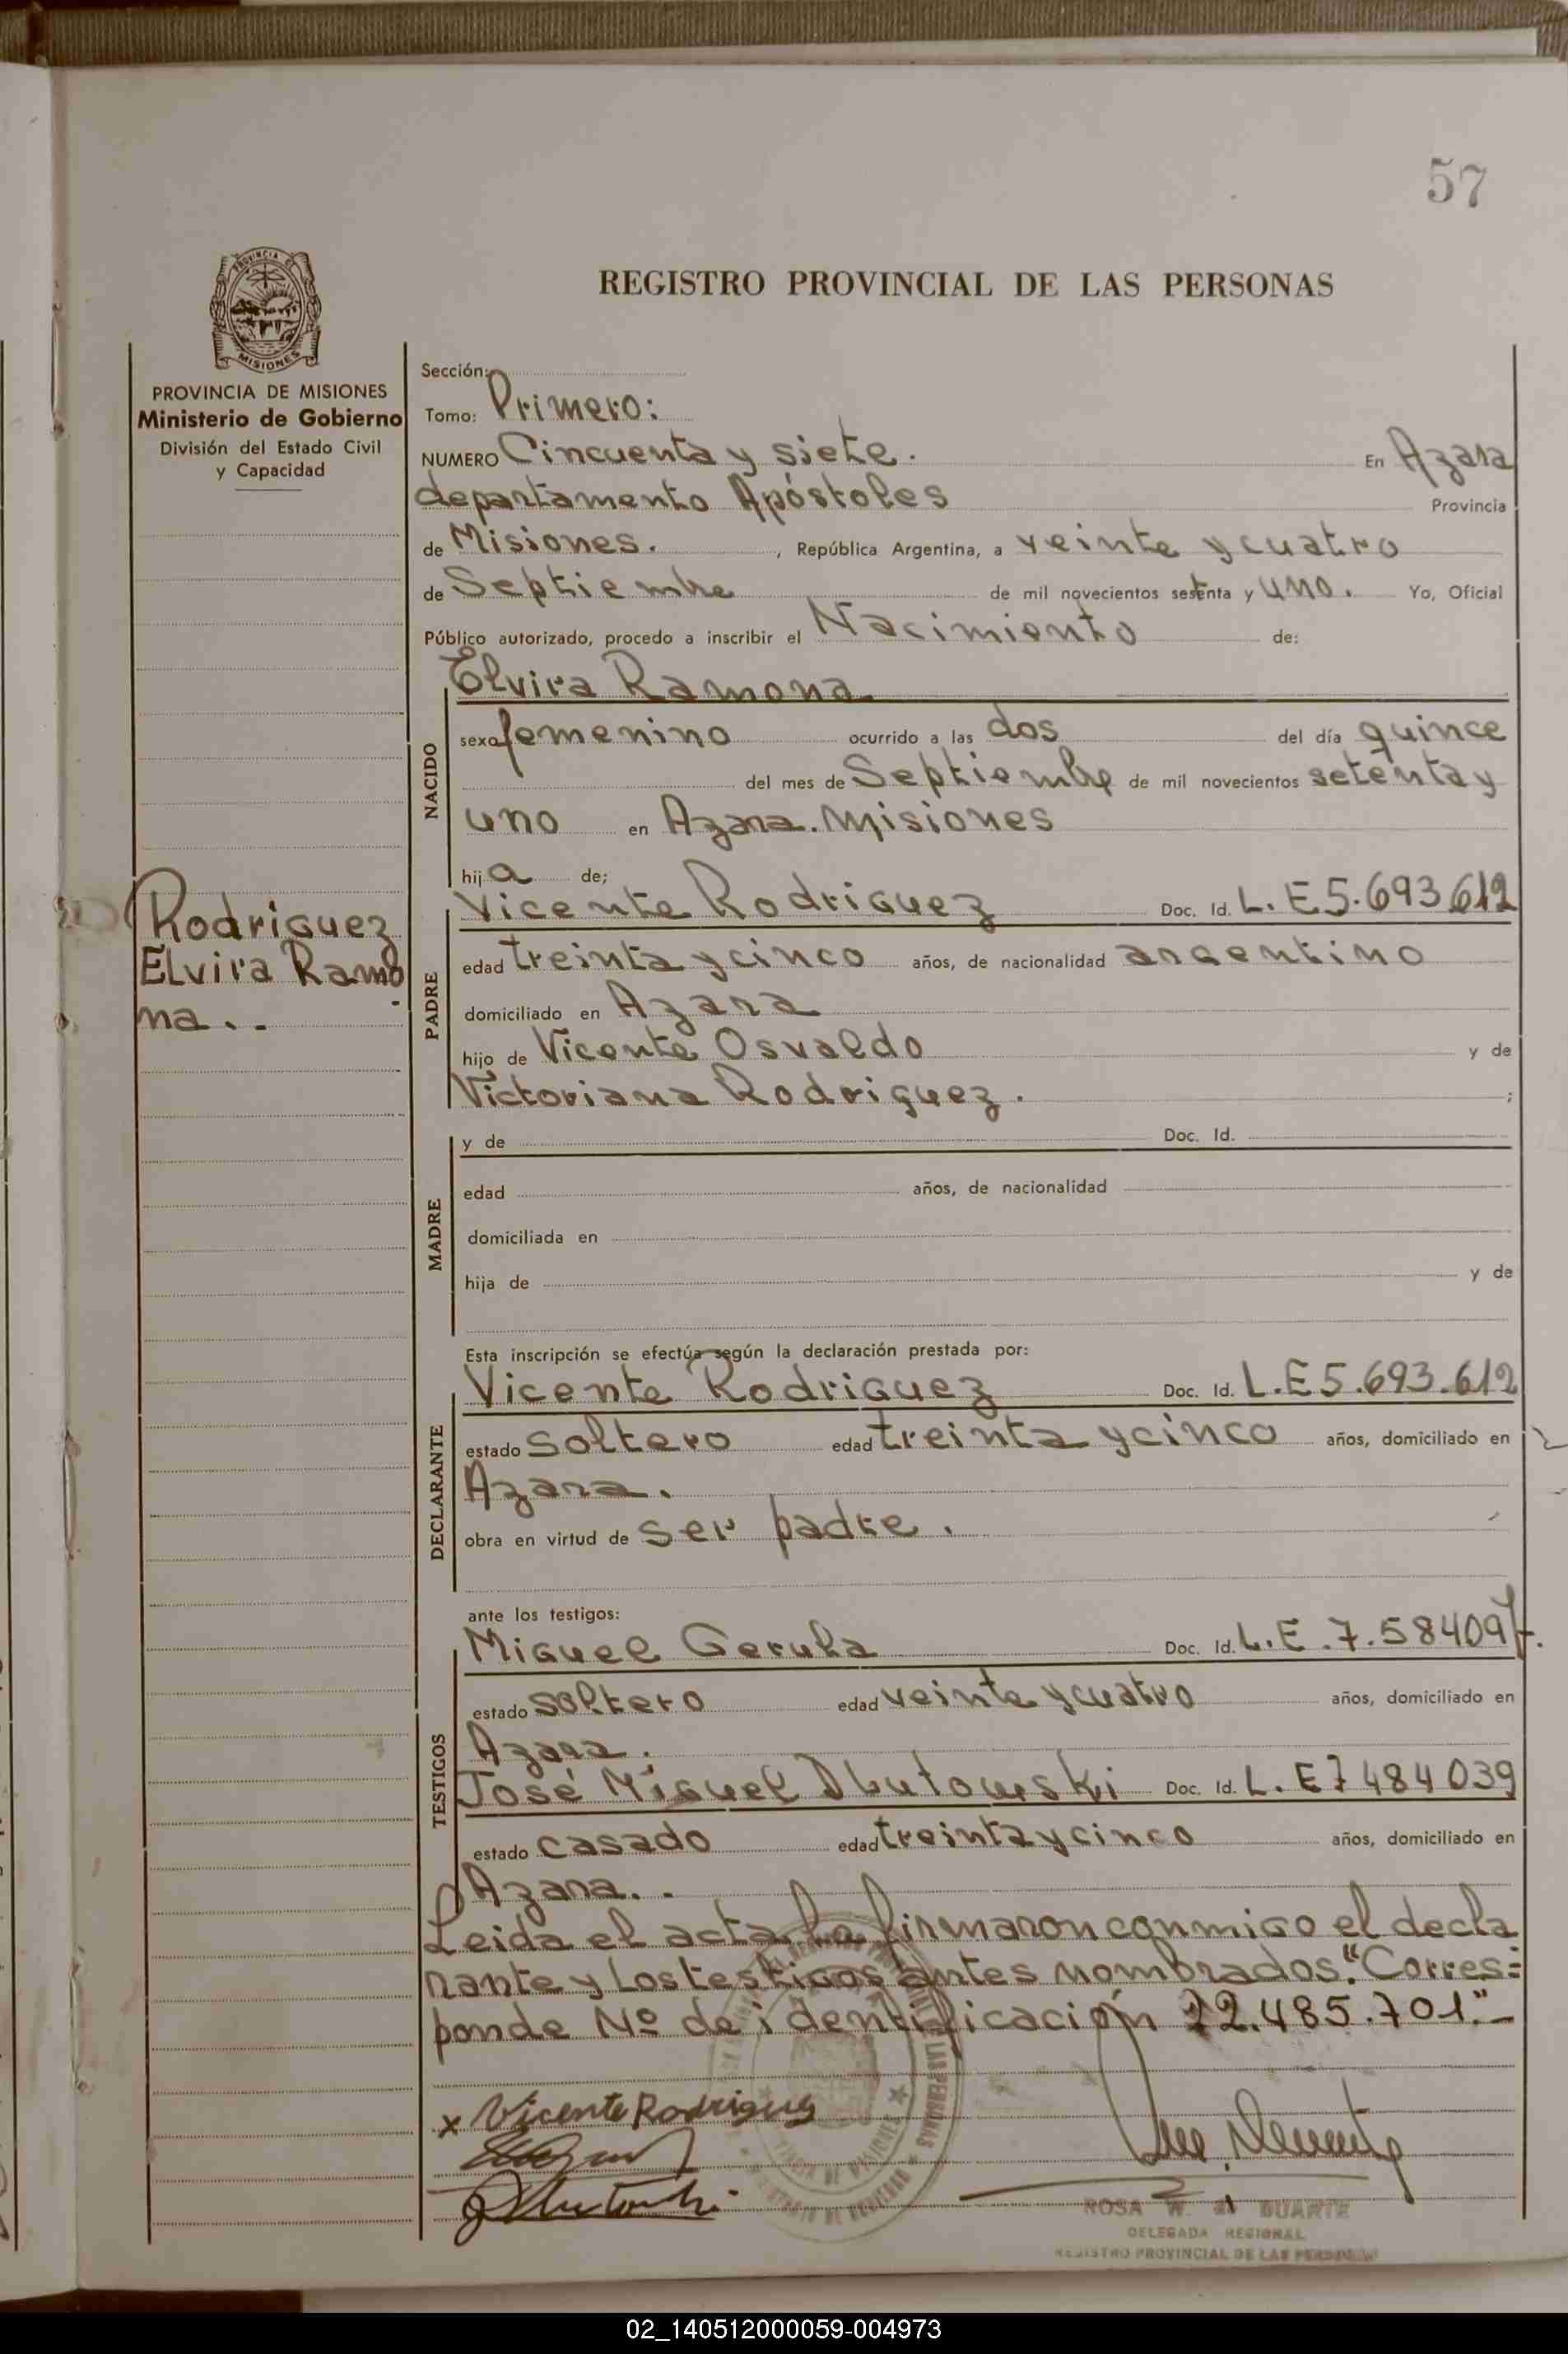 57
PROVINCIA DE
MISIONES
REGISTRO PROVINCIAL DE LAS PERSONAS
PROVINCIA DE MISIONES
Ministerio de Gobierno
División del Estado Civil
y Capacidad
Sección:
Tomo: Primero:
NUMERO Cincuenta y siete. En Azara
departamento Apóstoles Provincia
de Misiones. , República Argentina, a veinte y cuatro
de Septiembre de mil novecientos setenta y uno. Yo, Oficial
Público autorizado, procedo a inscribir el Nacimiento de:
NACIDO
Elvira Ramona
sexo femenino ocurrido a las dos del día quince
del mes de Septiembre de mil novecientos setenta y
uno en Azara. Misiones
hij a de;
Rodriguez
Elvira Ramo
na..-
PADRE
Vicente Rodriguez Doc. Id. L.E 5.693.612
edad treinta y cinco años, de nacionalidad argentino
domiciliado en Azara
hijo de Vicente Osvaldo y de
Victoriana Rodriguez. ;
MADRE
y de Doc. Id.
edad años, de nacionalidad
domiciliada en
hija de y de
Esta inscripción se efectúa según la declaración prestada por:
DECLARANTE
Vicente Rodriguez Doc. Id. L.E 5.693.612
estado soltero edad treinta y cinco años, domiciliado en
Azara.
obra en virtud de ser padre.
ante los testigos:
TESTIGOS
Miguel Gerula Doc. Id. L.E. 7.584097.
estado soltero edad veinte y cuatro años, domiciliado en
Azara.
José Miguel Dlutowski Doc. Id. L.E 7484039
estado casado edad treinta y cinco años, domiciliado en
Azara..
Leida el acta la firmaron conmigo el decla
rante y los testigos antes nombrados. "Corres=
ponde Nº de identificación 22.485.701."-
x Vicente Rodriguez
ROSA W. de DUARTE
DELEGADA REGIONAL
REGISTRO PROVINCIAL DE LAS PERSONAS
02_140512000059-004973